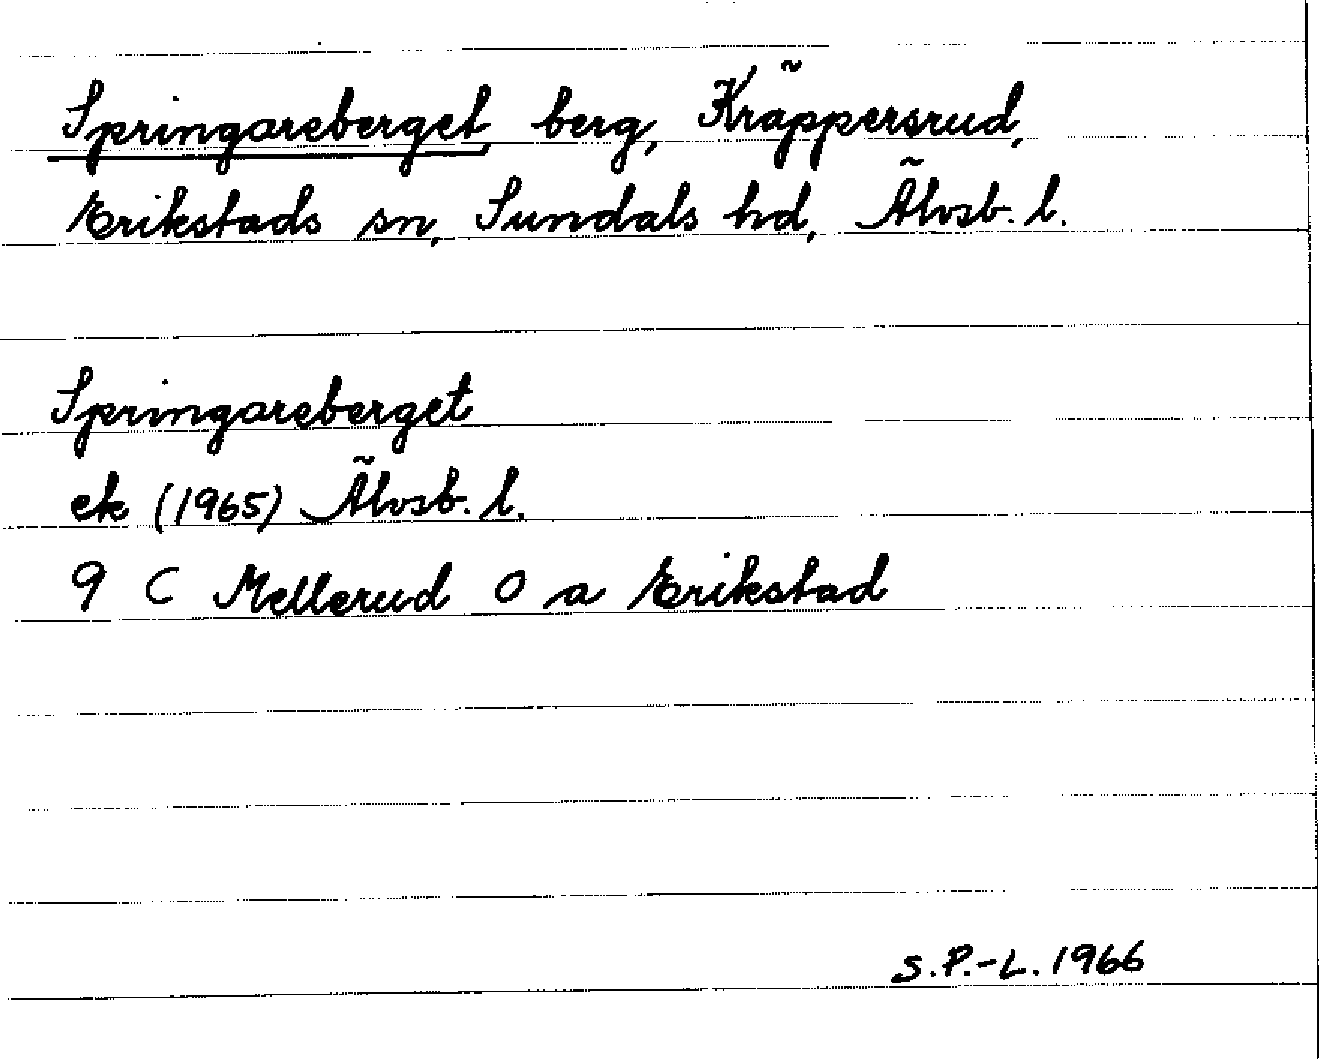 Springareberget, berg, Kräppersrud,
Erikstads sn, Sundals hd, Älvsb. l.
Springareberget
ek (1965) Älvsb. l.
9 C Mellerud O a Erikstad
S.P.-L. 1966